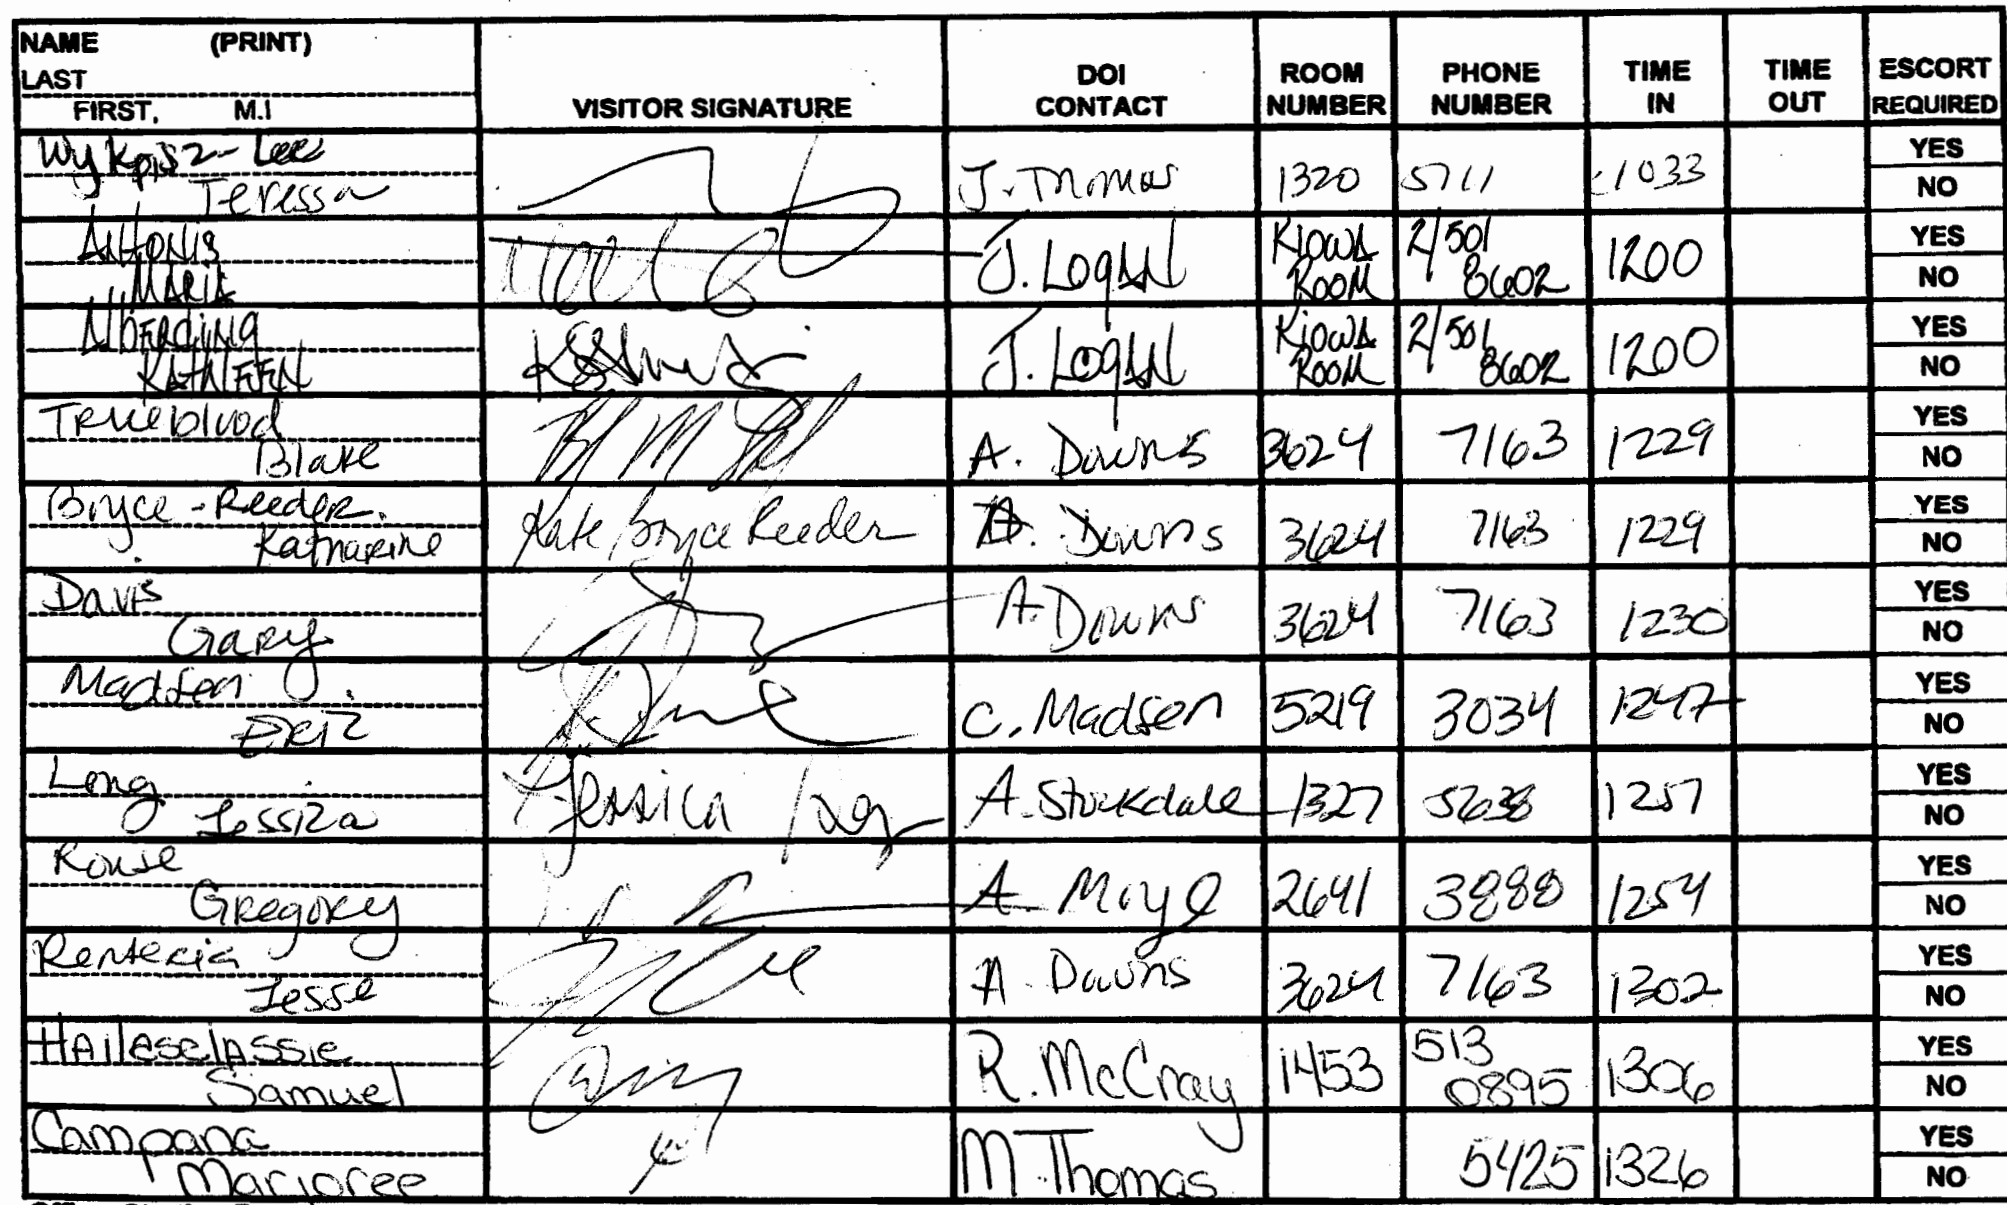 NAME (PRINT)
LAST
FIRST, M.I
VISITOR SIGNATURE
DOI CONTACT
ROOM NUMBER
PHONE NUMBER
TIME IN
TIME OUT
ESCORT REQUIRED
Wykpisz-Lee
Teressa
J. Thomas 1320 5711 1033 YES NO
Antonis
MARIA
J. Logan KIOWA ROOM 2/501 8602 1200 YES NO
Alberding
KATHLEEN
J. Logan KIOWA ROOM 2/501 8602 1200 YES NO
Trueblood
Blake
A. Downs 3624 7163 1229 YES NO
Bryce-Reeder
Katharine
Kate Bryce Reeder A. Downs 3624 7163 1229 YES NO
Davis
Gary
A. Downs 3624 7163 1230 YES NO
Madsen
Eric
C. Madsen 5219 3034 1247 YES NO
Long
Jessica
Jessica Long A. Stockdale 1327 5638 1257 YES NO
Rouse
Gregory
A. Moye 2641 3888 1254 YES NO
Renteria
Jesse
A Downs 3624 7163 1302 YES NO
Haileselassie
Samuel
R. McCray 1453 513 0895 1306 YES NO
Campana
Marjoree
M. Thomas 5425 1326 YES NO